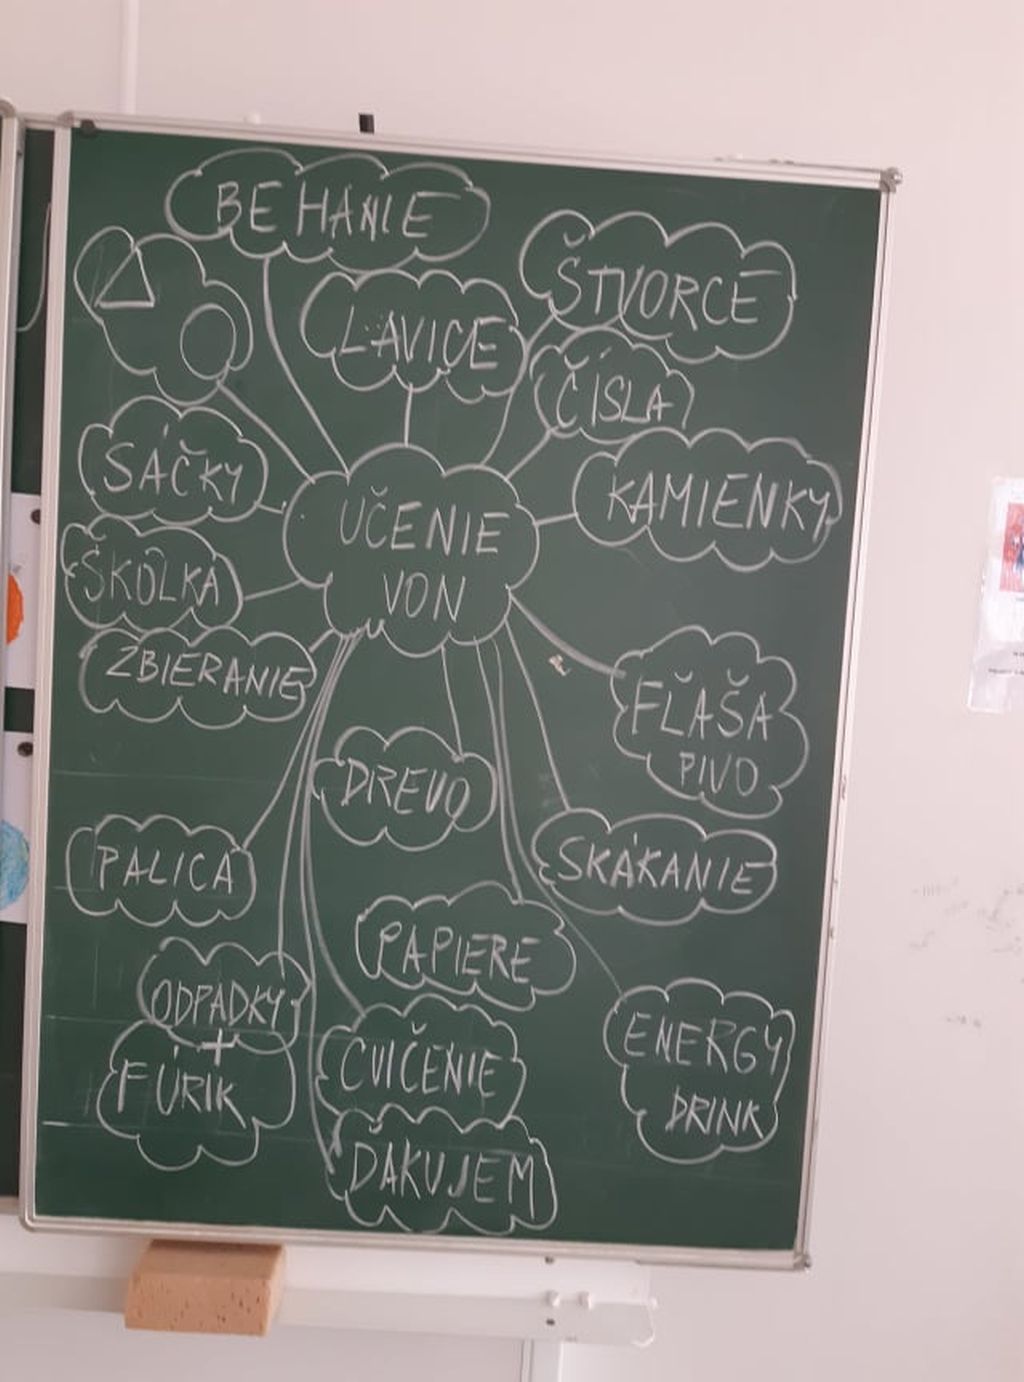 BEHANIE
ŠTVORCE
LAVICE
ČÍSLA
SÁČKY
KAMIENKY
UČENIE
VON
ŠKÔLKA
ZBIERANIE
FĽAŠA
PIVO
DREVO
PALICA
SKÁKANIE
PAPIERE
ODPADKY
+
FÚRIK
CVIČENIE
ENERGY
DRINK
ĎAKUJEM